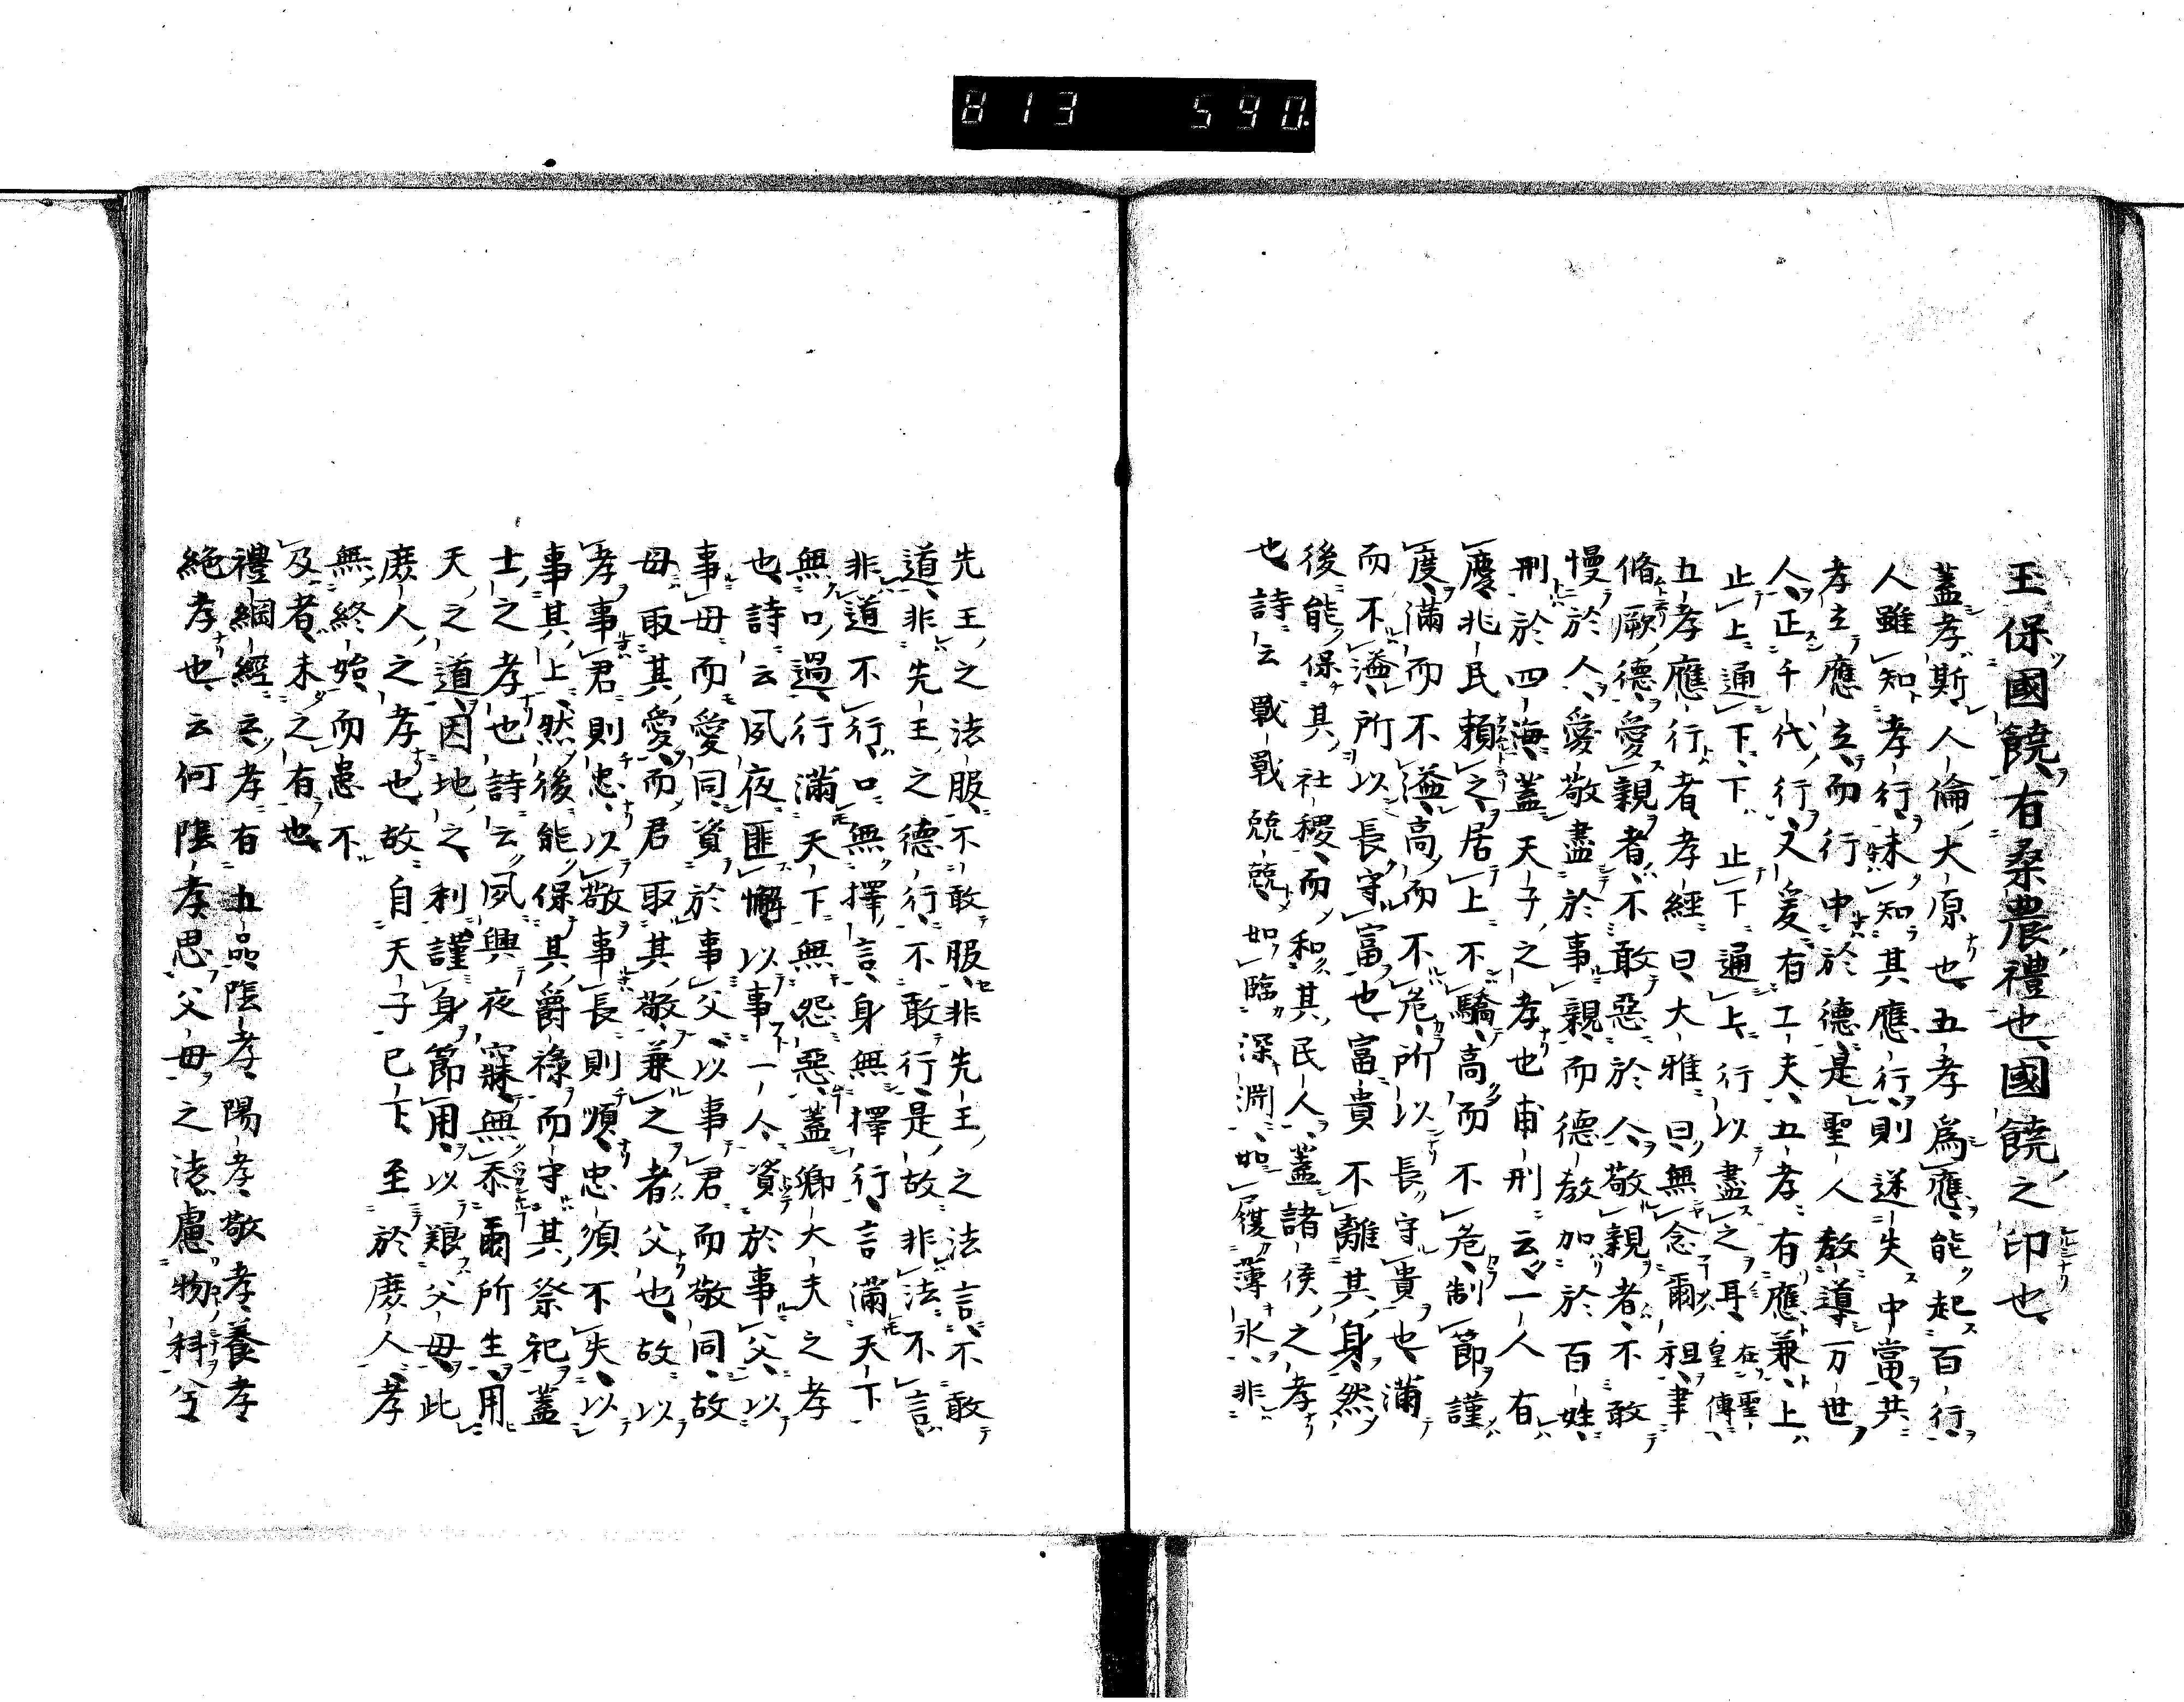 813 590.
王保國饒有桑農禮也國饒之印也
蓋孝斯人倫大原也五孝爲應能起百行
人雖知孝行未知其應行則迷失中當共
孝立應立而行中於德是聖人教導万世
人正千代行又爰有工夫五孝有應兼上
止上通下下止下通上行以盡之耳在聖皇傳
五孝應行者孝經曰大雅曰無念爾祖聿
脩厥德愛親者不敢惡於人敬親者不敢
慢於人愛敬盡於事親而德教加於百姓
刑於四海蓋天子之孝也甫刑云一人有
慶兆民賴之居上不驕高而不危制節謹
度滿而不溢高而不危所以長守貴也滿
而不溢所以長守富也富貴不離其身然
後能保其社稷而和其民人蓋諸侯之孝
也詩云戰戰兢兢如臨深渊如履薄氷非
先王之法服不敢服非先王之法言不敢
道非先王之德行不敢行是故非法不言
非道不行口無擇言身無擇行言滿天下
無口過行滿天下無怨惡蓋卿大夫之孝
也詩云夙夜匪懈以事一人資於事父以
事母而愛同資於事父以事君而敬同故
母取其愛而君取其敬兼之者父也故以
孝事君則忠以敬事長則順忠須不失以
事其上然後能保其爵祿而守其祭祀蓋
士之孝也詩云夙興夜寐無忝爾所生用
天之道因地之利謹身節用以粮父母此
庶人之孝也故自天子已下至於庶人孝
無終始而患不
及者未之有也
禮綱經立孝有五品陰孝陽孝敬孝養孝
絶孝也云何陰孝思父母之法慮物科全